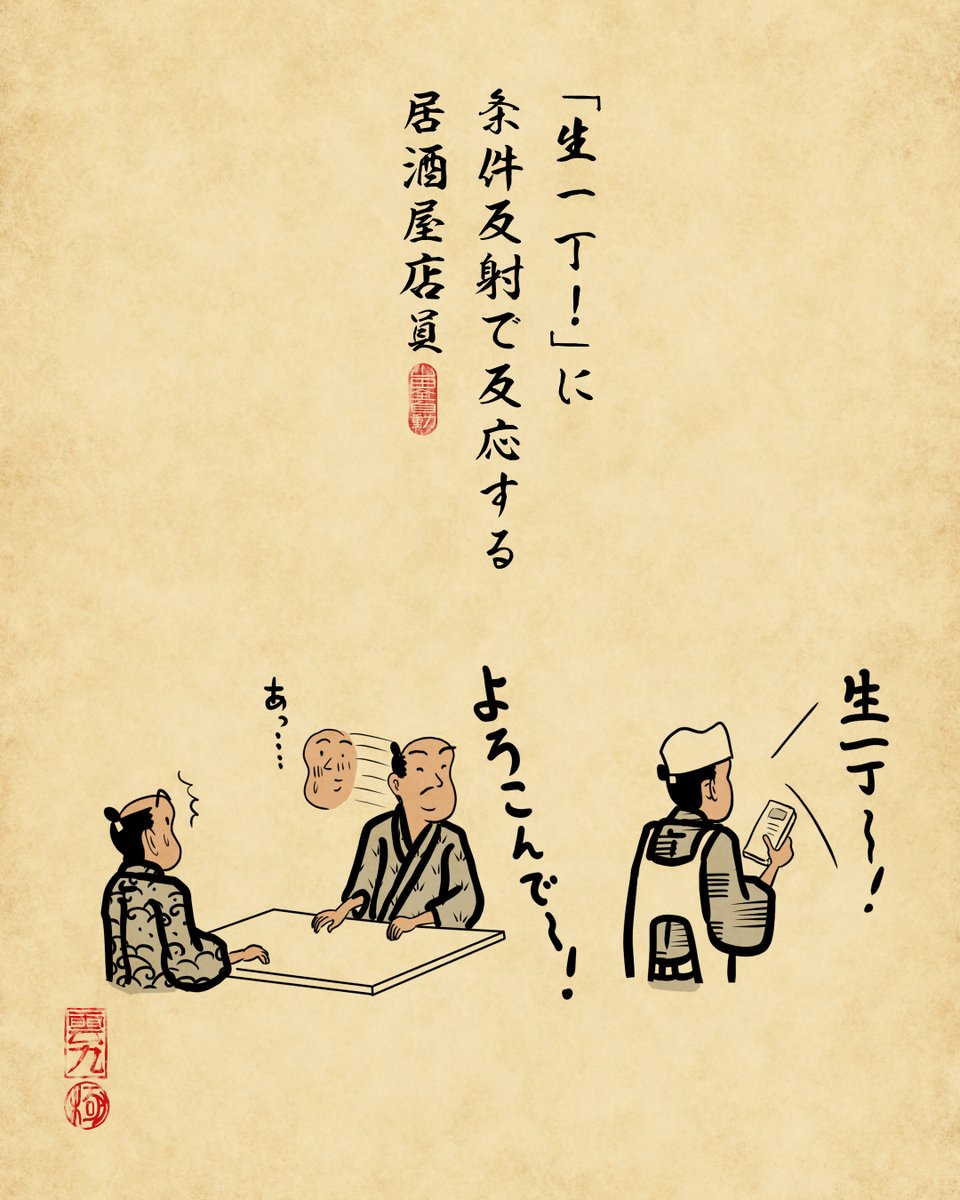 「生一丁！」に
条件反射で反応する
居酒屋店員
生一丁〜！
よろこんで〜！
あっ……